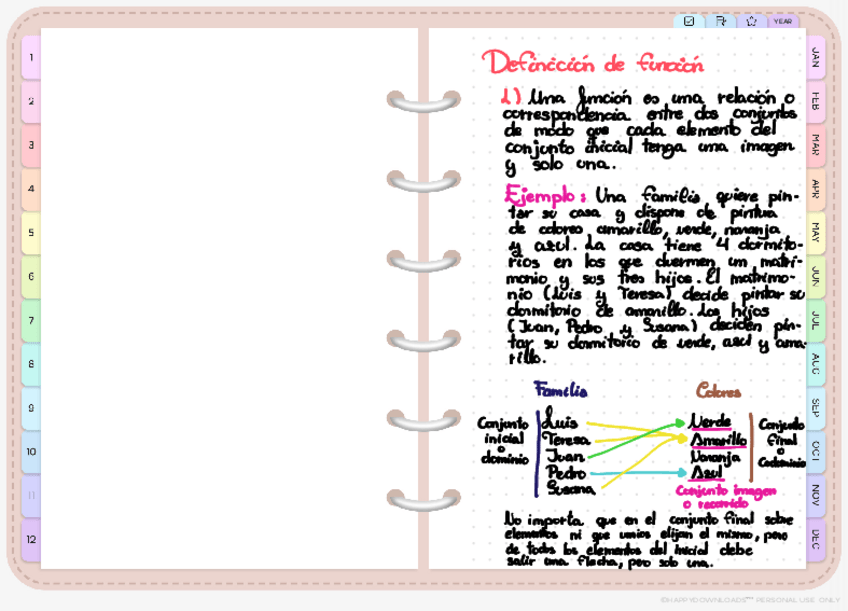 YEAR
1
2
3
4
5
6
7
8
9
10
11
12
JAN
FEB
MAR
APR
MAY
JUN
JUL
AUG
SEP
OCT
NOV
DEC
Definición de función
1) Una función es una relación o
correspondencia entre dos conjuntos
de modo que cada elemento del
conjunto inicial tenga una imagen
y solo una.
Ejemplo: Una familia quiere pin-
tar su casa y dispone de pintura
de colores amarillo, verde, naranja
y azul. La casa tiene 4 dormito-
rios en los que duermen un matri-
monio y sus tres hijos. El matrimo-
nio (Luis y Teresa) decide pintar su
dormitorio de amarillo. Los hijos
(Juan, Pedro y Susana) deciden pin-
tar su dormitorio de verde, azul y ama-
rillo.
Familia
Colores
Conjunto
inicial
o
dominio
Luis
Teresa
Juan
Pedro
Susana
Verde
Amarillo
Naranja
Azul
Conjunto
final
o
Codominio
Conjunto imagen
o recorrido
No importa que en el conjunto final sobre
elementos ni que varios elijan el mismo, pero
de todos los elementos del inicial debe
salir una flecha, pero solo una.
©HAPPYDOWNLOADS™ PERSONAL USE ONLY